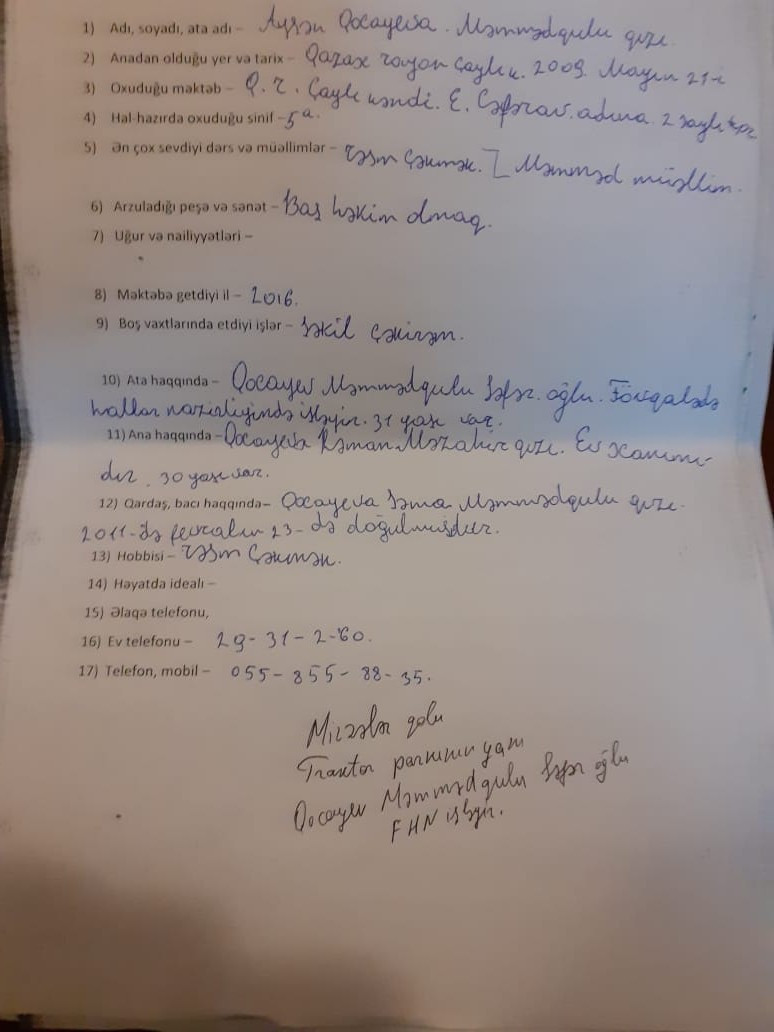 1) Adı, soyadı, ata adı – Aysən Qocayeva. Məmmədqulu qızı.
2) Anadan olduğu yer və tarix – Qazax rayon Çaylı k. 2009. Mayın 21-i
3) Oxuduğu məktəb – Q. r. Çaylı kəndi. E. Cəfərov. adına. 2 saylı
4) Hal-hazırda oxuduğu sinif – 5ᵃ.
5) Ən çox sevdiyi dərs və müəllimlər – rəsm çəkmək. Məmməd müəllim.
6) Arzuladığı peşə və sənət – Baş həkim olmaq.
7) Uğur və nailiyyətləri –
8) Məktəbə getdiyi il – 2016.
9) Boş vaxtlarında etdiyi işlər – şəkil çəkirəm.
10) Ata haqqında – Qocayev Məmmədqulu Səfər. oğlu. Fövqaladə
hallar nazirliyində işləyir. 31 yaşı var.
11) Ana haqqında – Qocayeva Kəmən. Məzahir qızı. Ev xanımı-
dır. 30 yaşı var.
12) Qardaş, bacı haqqında – Qocayeva Səma Məmmədqulu qızı.
2011-də fevralın 23-də doğulmuşdur.
13) Hobbisi – rəsm çəkmək.
14) Həyatda idealı –
15) Əlaqə telefonu,
16) Ev telefonu – 29-31-2-60.
17) Telefon, mobil – 055-855-88-35.
Mirzələr
Traktor parkının yanı
Qocayev Məmmədqulu Səfər oğlu
FHN işləyir.